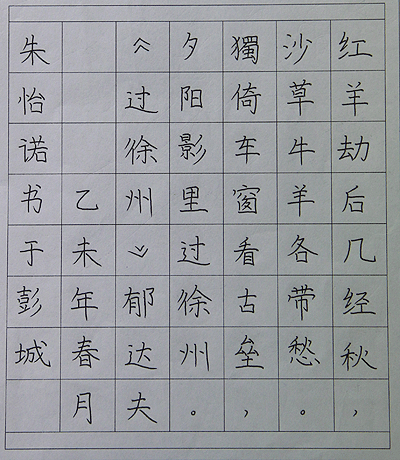 红羊劫后几经秋，
沙草牛羊各带愁。
獨倚车窗看古垒，
夕阳影里过徐州。
《过徐州》郁达夫
乙未年春月
朱怡诺书于彭城